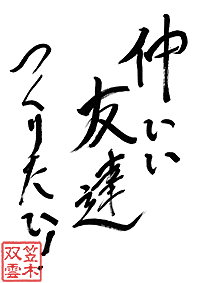 仲いい
友達
つくりたひ!
笠木
双雲